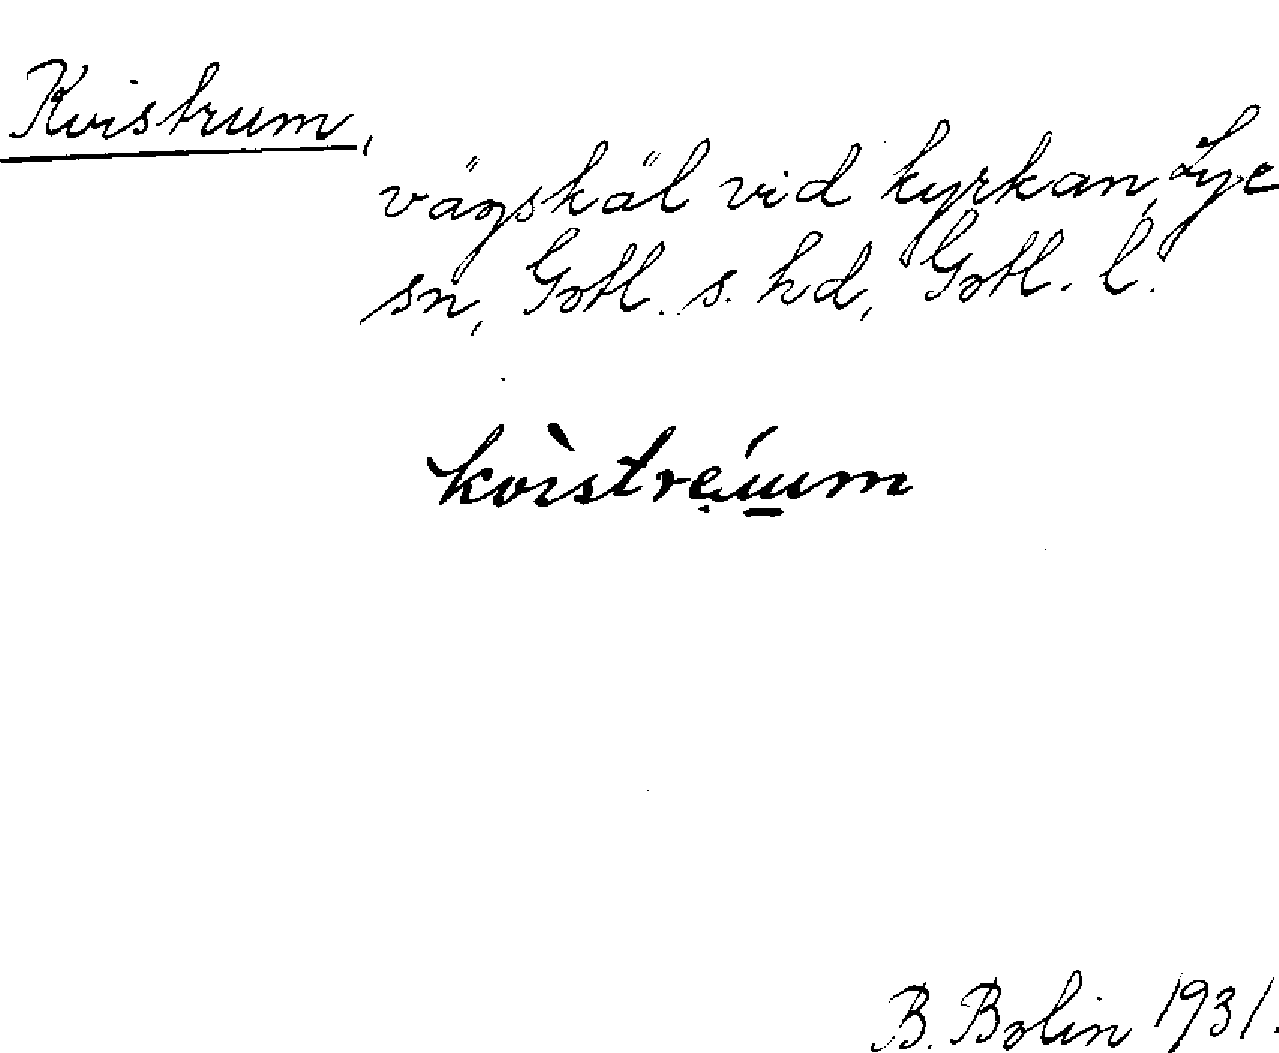 Kvistrum,
vägskäl vid kyrkan, Lye
sn, Gotl. s. hd, Gotl. l.
kvìstrẹú̱um
B. Bolin 1931.